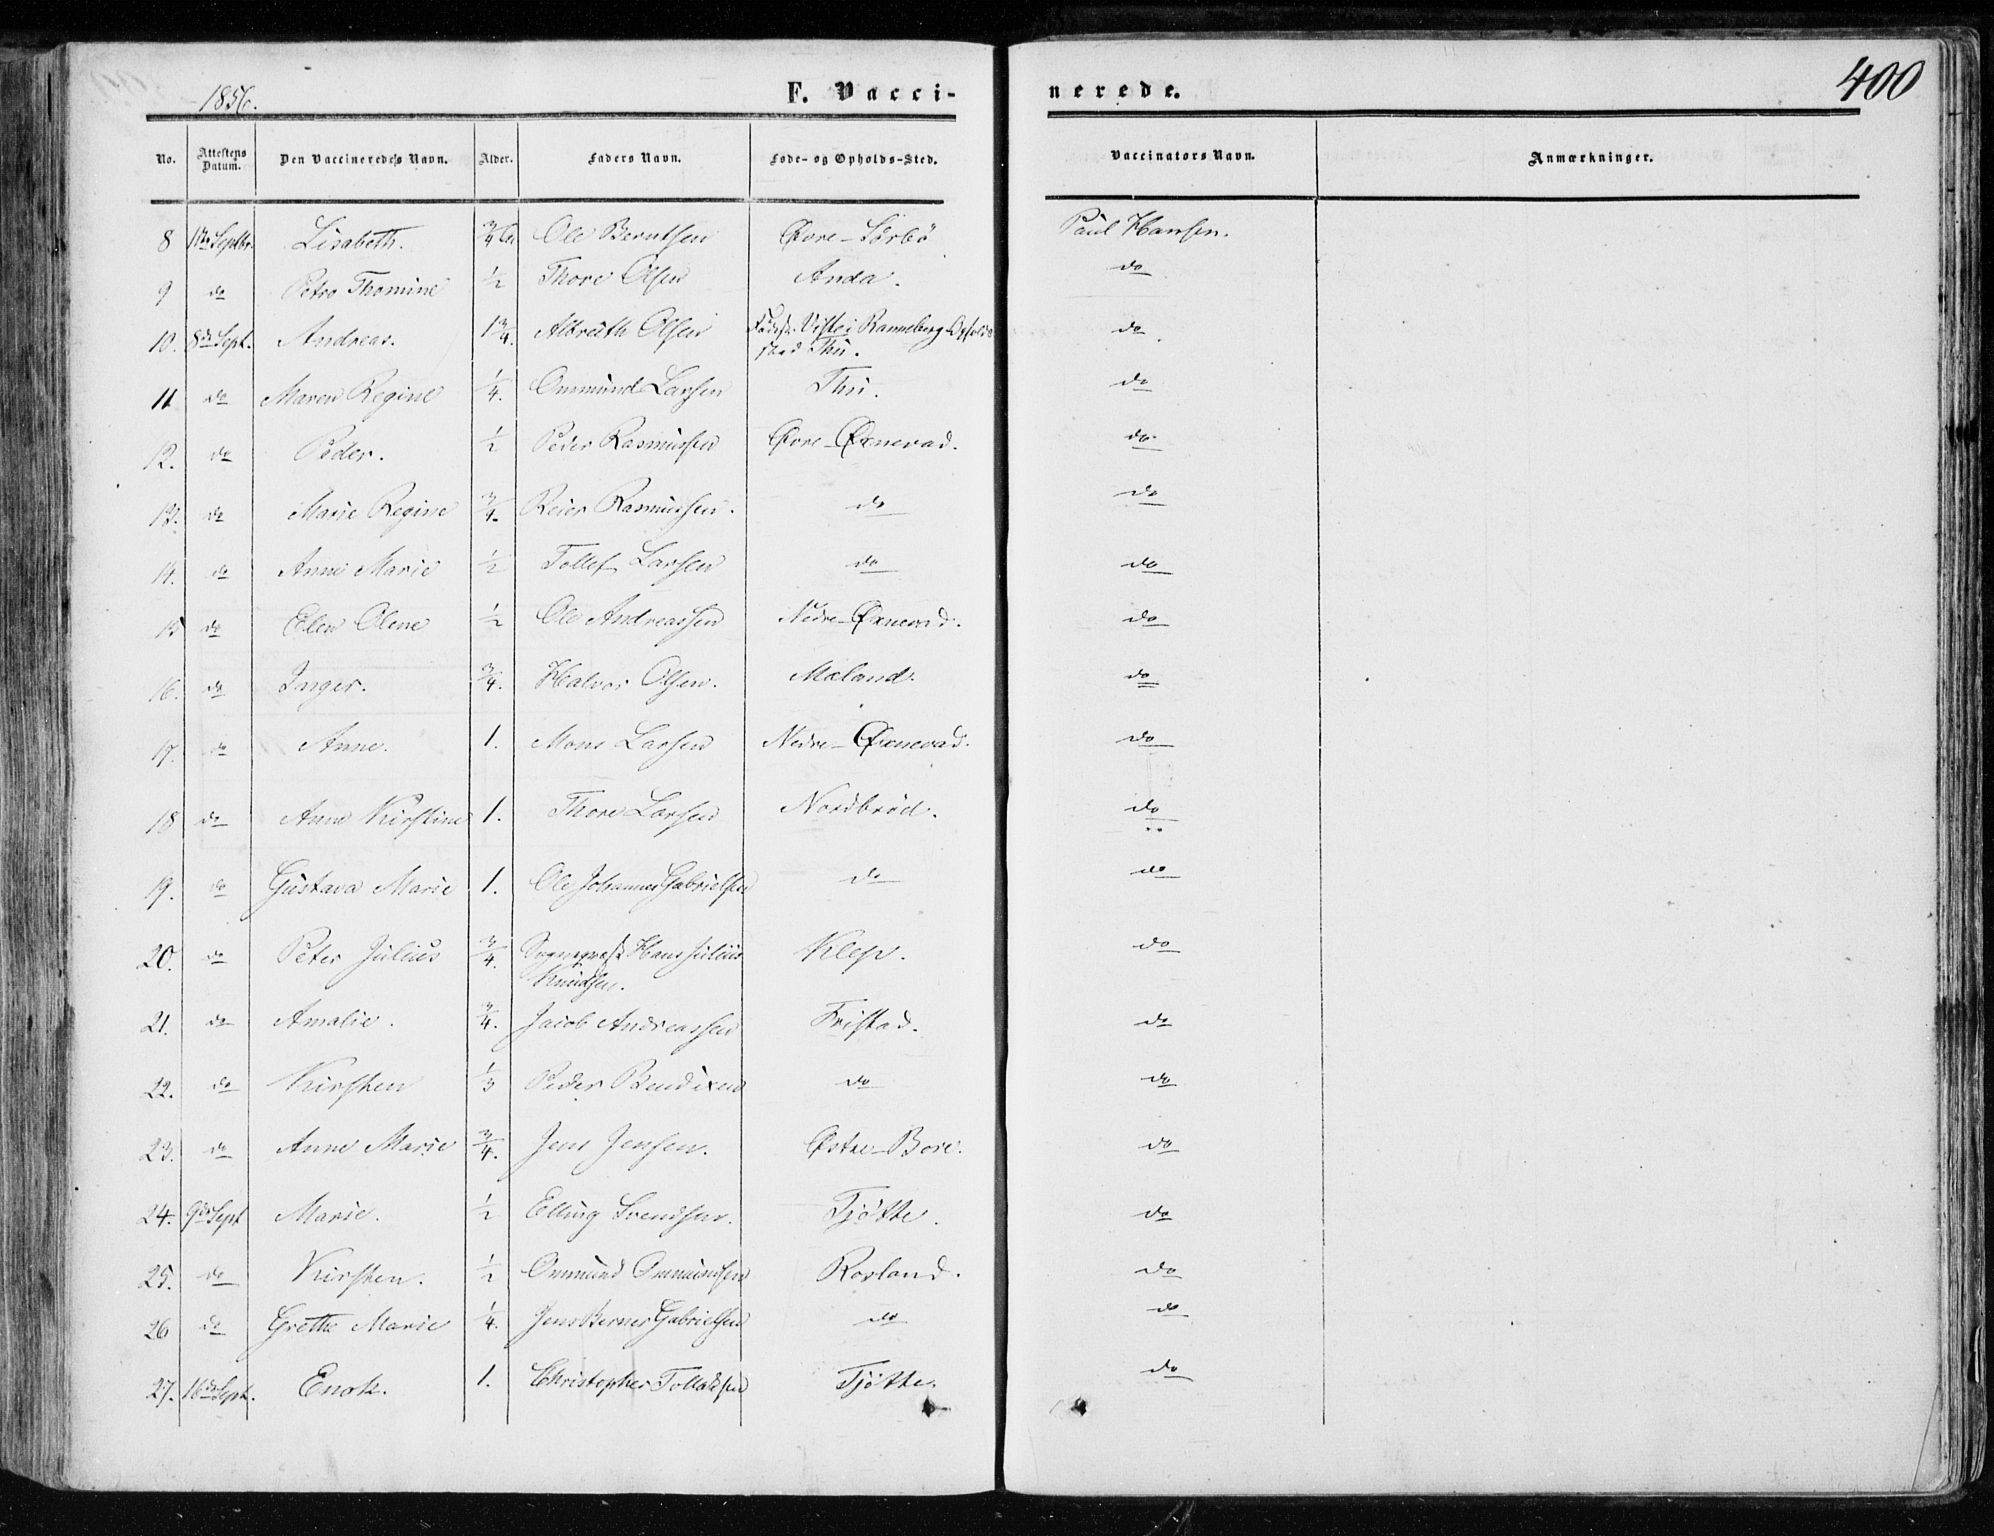 1856.
F. Vacci-
nerede.
400
No. Attestens Datum. Den Vaccineredes Navn. Alder. Faders Navn. Føde- og Opholds-Sted. Vaccinators Navn. Anmærkninger.
8 Septbr. Lisabeth. 3/4 Ole Berntsen Øvre-Sørbø Paul Hansen.
9 do Petra Thomine 1/2 Thore Olsen Anda. do
10. 8de Sept. Andreas. 1 3/4. Albreth Olsen Fødest. Viste i Ranneberg Opholds do
sted Thu.
11 do Maren Regine 1/4. Ommund Larsen Thu. do
12. do Peder. 1/2 Peder Rasmussen Øvre-Øxnevad. do
13. do Marie Regine 3/4. Reier Rasmussen. do do
14. do Anne Marie 1/2 Tollef Larsen do do
15 do Elen Olene 1/2 Ole Andreassen Nedre-Øxnevad. do
16. do Inger. 3/4. Halvor Olsen. Mæland. do
17. do Anne. 1. Mons Larsen Nedre-Øxnevad. do
18 do Anne Kirstine 1. Thore Larsen Nordbrød. do
19. do Gustava Marie 1. Ole Johannes Gabrielsen do do
20. do Peter Julius 3/4. Sognepræst Hans Julius Klep. do
Knudsen.
21. do Amalie. 3/4. Jacob Andreassen Fristad. do
22. do Kirsten 1/3 Peder Bendixen do do
23. do Anne Marie 3/4. Jens Jensen. Østre-Bore. do
24. 9de Sept Marie. 1/2 Elling Svendsen. Tjøtte. do
25. do Kirsten. 1/2 Ommund Ommundsen Rosland. do
26 do Grethe Marie 1/4. Jens Berner Gabrielsen do do
27. 16de Sept. Enok. 1. Christopher Tollaksen Tjøtte. do